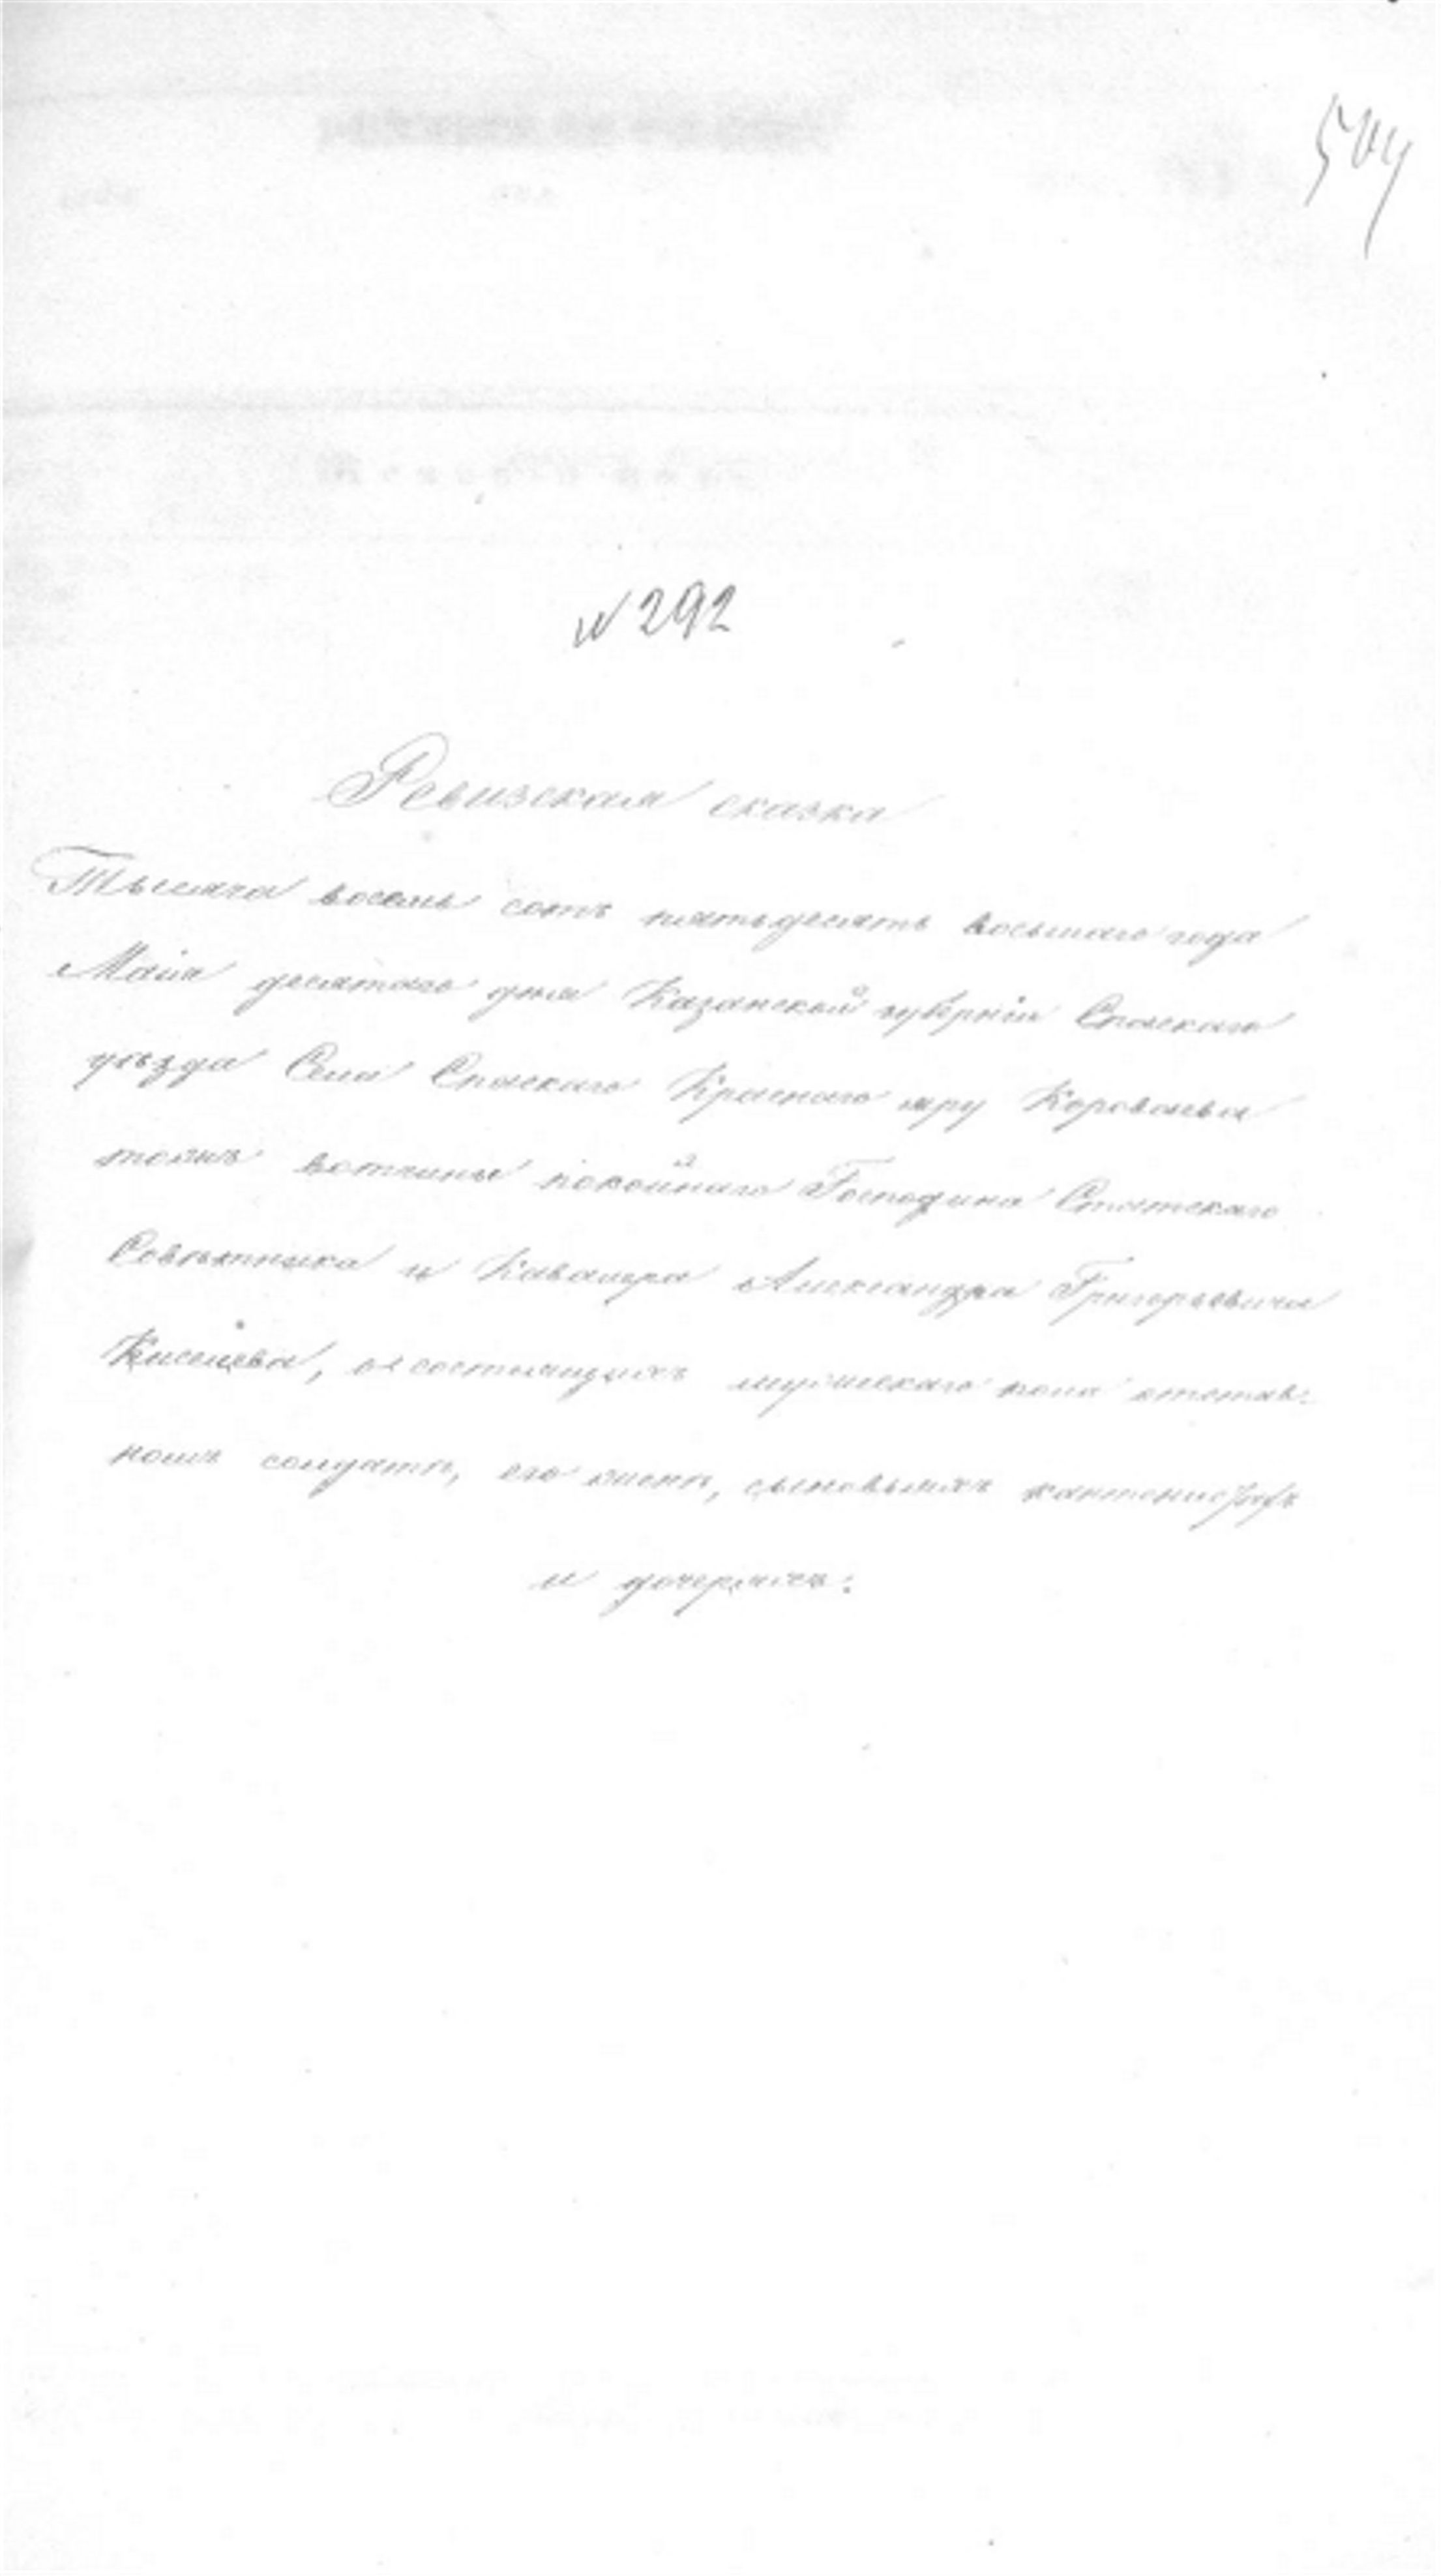 504
№ 292
Ревизская сказка
Тысяча восемь сотъ пятьдесятъ восьмаго года
Маія десятаго дня Казанской губерніи Спаскаго
уѣзда Села Спаскаго Краснаго яру Короваева
тожъ вотчины покойнаго Господина Статскаго
Совѣтника и Кавалера Александра Григорьевича
Киселева, о состоящихъ мужескаго пола отстав:
номъ солдатѣ, его женѣ, сыновьяхъ кантонистахъ
и дочеряхъ: